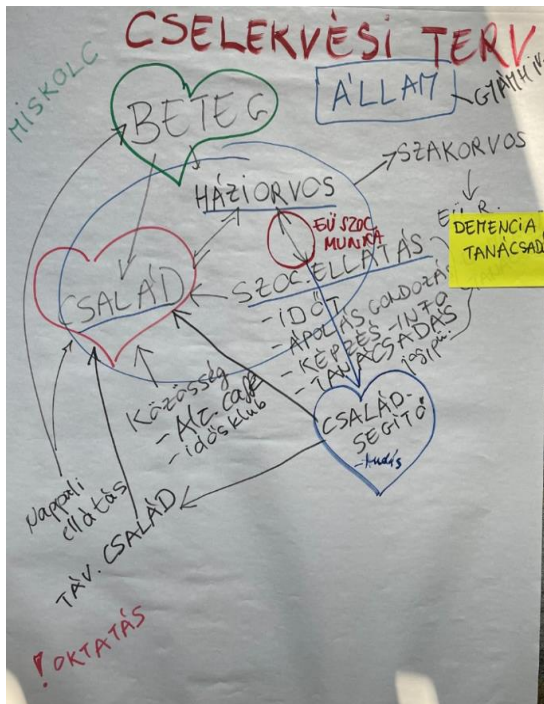 CSELEKVÉSI TERV
MISKOLC
BETEG
ÁLLAM
GYÁMHIV
SZAKORVOS
HÁZIORVOS
EÜ SZOC
MUNKA
DEMENCIA
TANÁCSADÓ
SZOC. ELLÁTÁS
- IDŐT
- ÁPOLÁS GONDOZÁS
- KÉPZÉS - INFO
- TANÁCSADÁS
CSALÁD
Közösség
- Alz. café
- idősklub
CSALÁD-
SEGÍTŐ
- tudás
Nappali
ellátás
TÁV. CSALÁD
! OKTATÁS